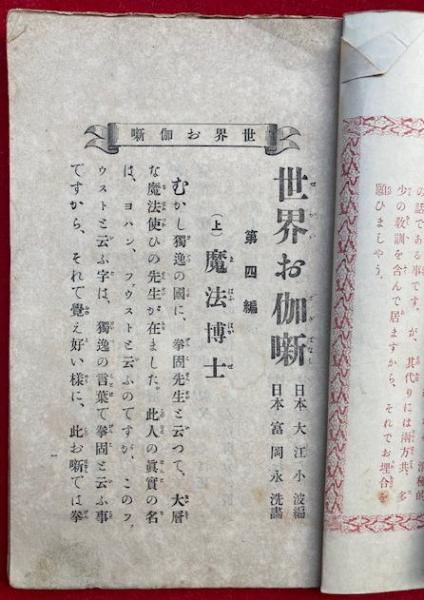 消極的
の話である事です。が、其代りには兩方共、多
少の教訓を含んで居ますから、それでお埋合を
願ひましやう。
世界お伽噺
世界お伽噺
第四編
日本 大江小波編
日本 富岡永洗畫
(上) 魔法博士
むかし獨逸の國に、拳固先生と云つて、大層
な魔法使ひの先生が在ました。此人の眞實の名
は、ヨハン、ファウストと云ふのですが、このファ
ウストと云ふ字は、獨逸の言葉で拳固と云ふ事
ですから、それで覺え好い樣に、此お噺では拳